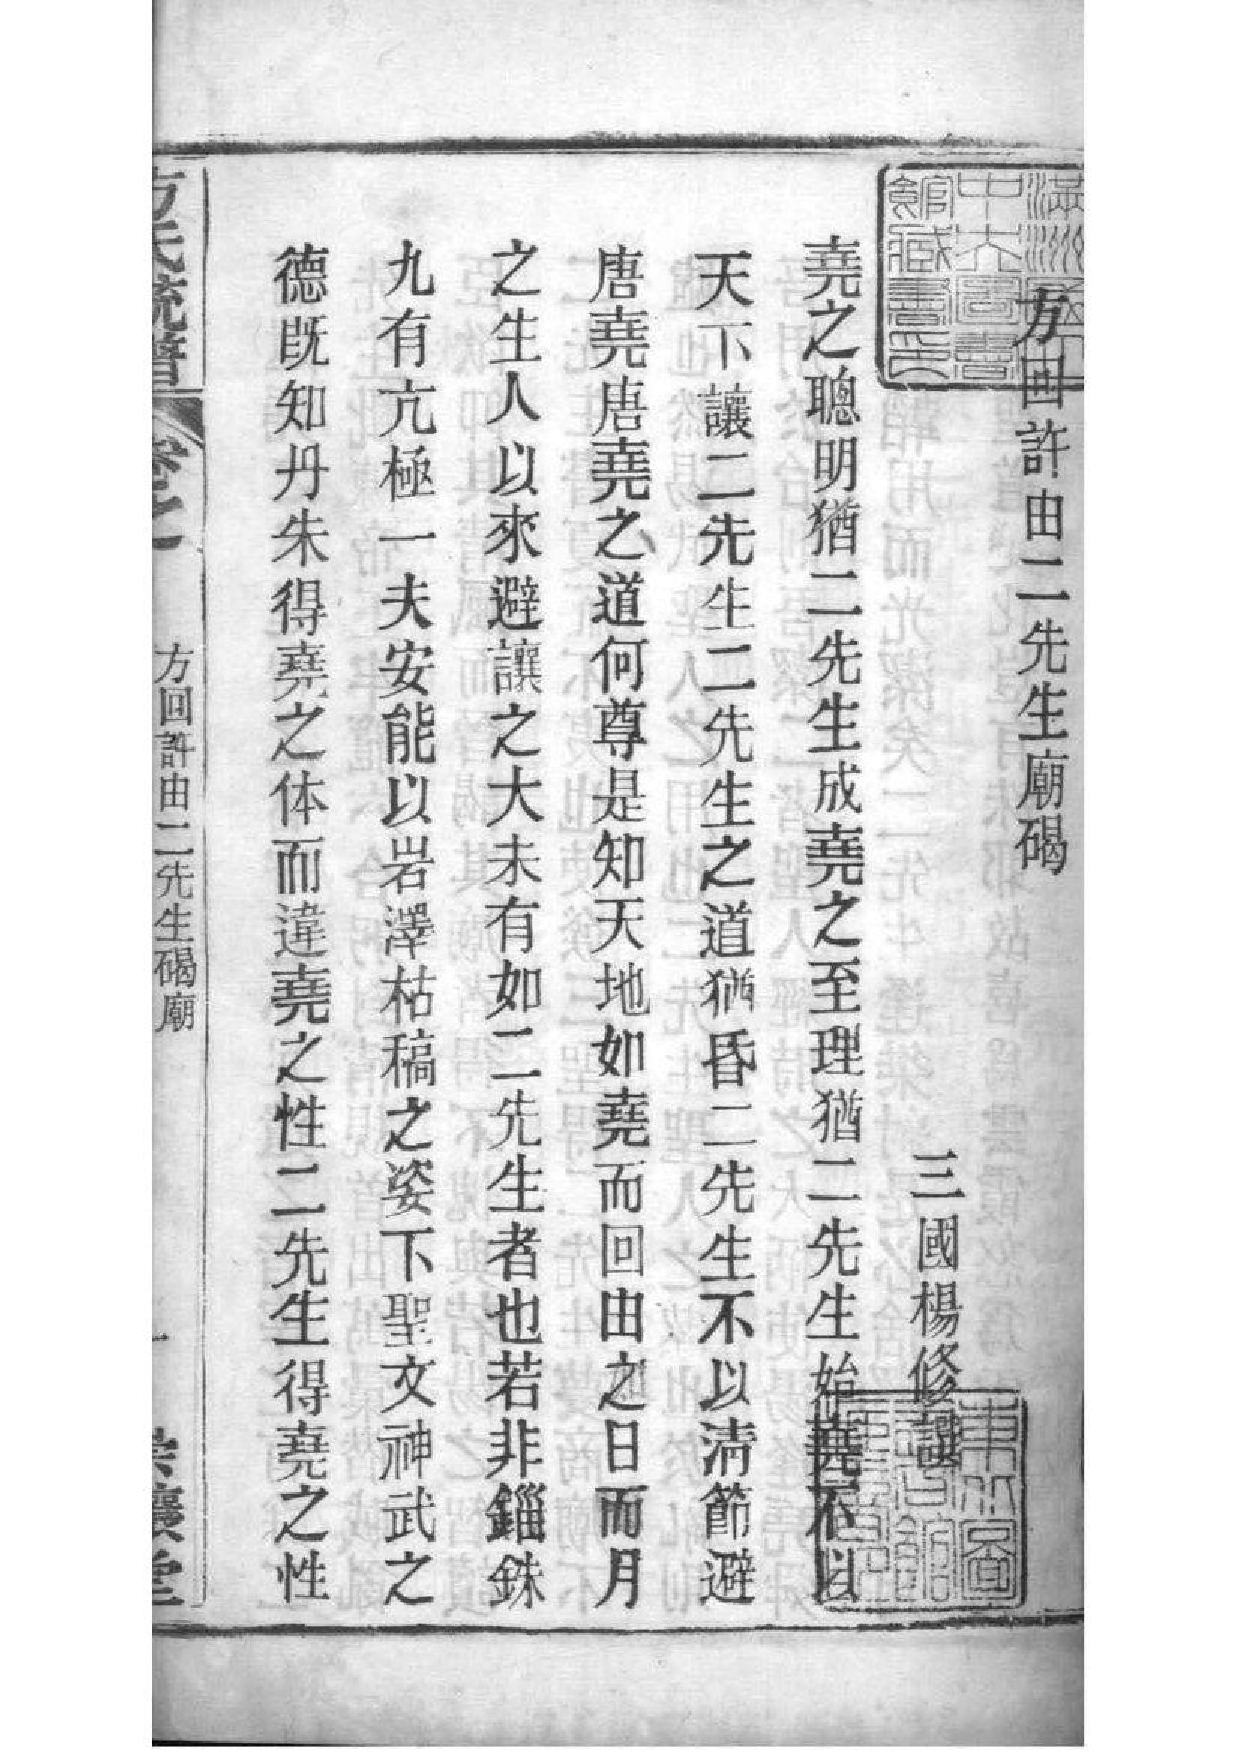 方回許由二先生廟碣
三國楊修譔
堯之聰明猶二先生成堯之至理猶二先生始堯不以
天下讓二先生二先生之道猶昏二先生不以淸節避
唐堯唐堯之道何尊是知天地如堯而回由之日而月
之生人以來避讓之大未有如二先生者也若非錙銖
九有亢極一夫安能以岩澤枯稿之姿下聖文神武之
德既知丹朱得堯之体而違堯之性二先生得堯之性
方氏統譜
卷之一
方回許由二先生碣廟
一
崇讓堂